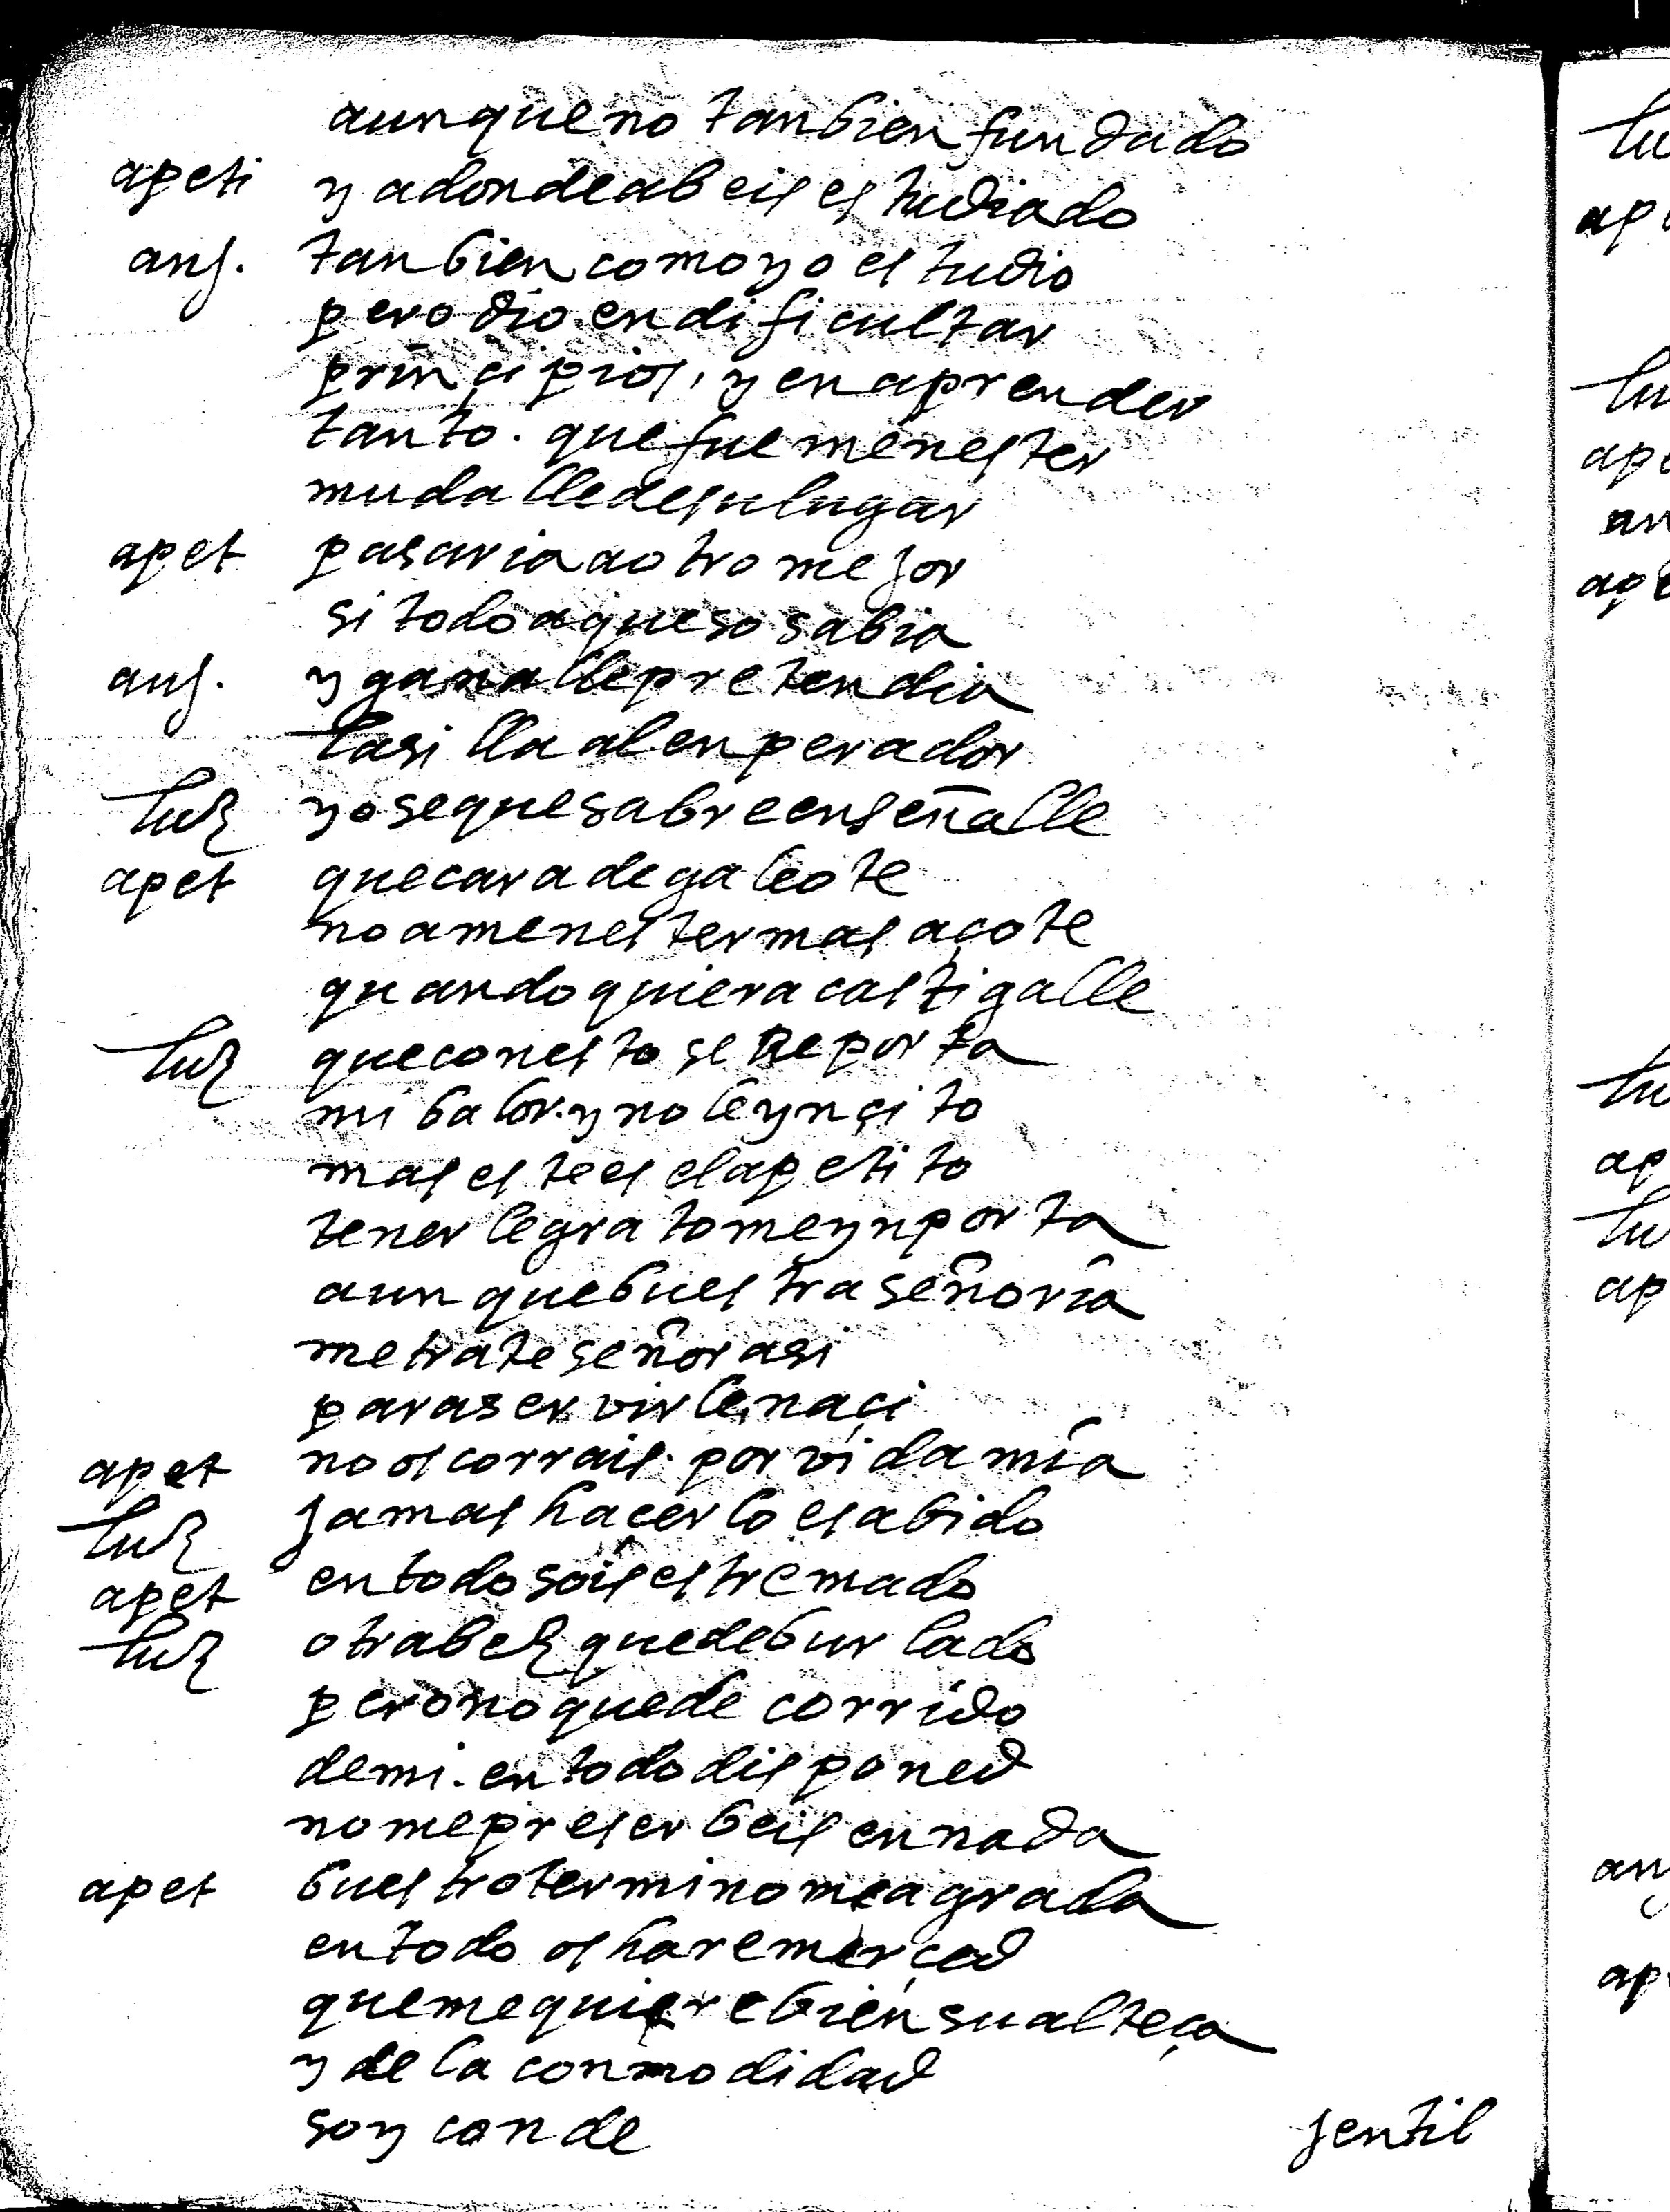 aunque no tan bien fundado
apeti y adonde abeis estudiado
anj. tan bien como yo estudio
pero dio en dificultar
prinçipios, y en aprender
tanto. que fue menester
mudalle de su lugar
apet pasaria a otro mejor
si todo aqueso sabia
anj. y ganalle pretendia
la silla al enperador
luz yo se que sabre enseñalle
apet que cara de galeote
no a menester mas açote
quando quiera castigalle
luz que con esto se Reporta
mi balor. y no le ynçito
mas este es el apetito
tenerle grato me ynporta
aunque buestra señoria
me trate señor asi
para servirle naçi
apet no os corrais. por vida mia
luz jamas hacerlo e sabido
apet en todo sois estremado
luz otra bez quede burlado
pero no quede corrido
de mi. en todo disponed
no me preserbeis en nada
apet buestro termino me agrada
en todo os hare merçed
que me quiere bien su alteça
y de la conmodidad
soy conde jentil
lu
ape
lu
ape
an
ape
lu
ap
lu
ap
an
ap